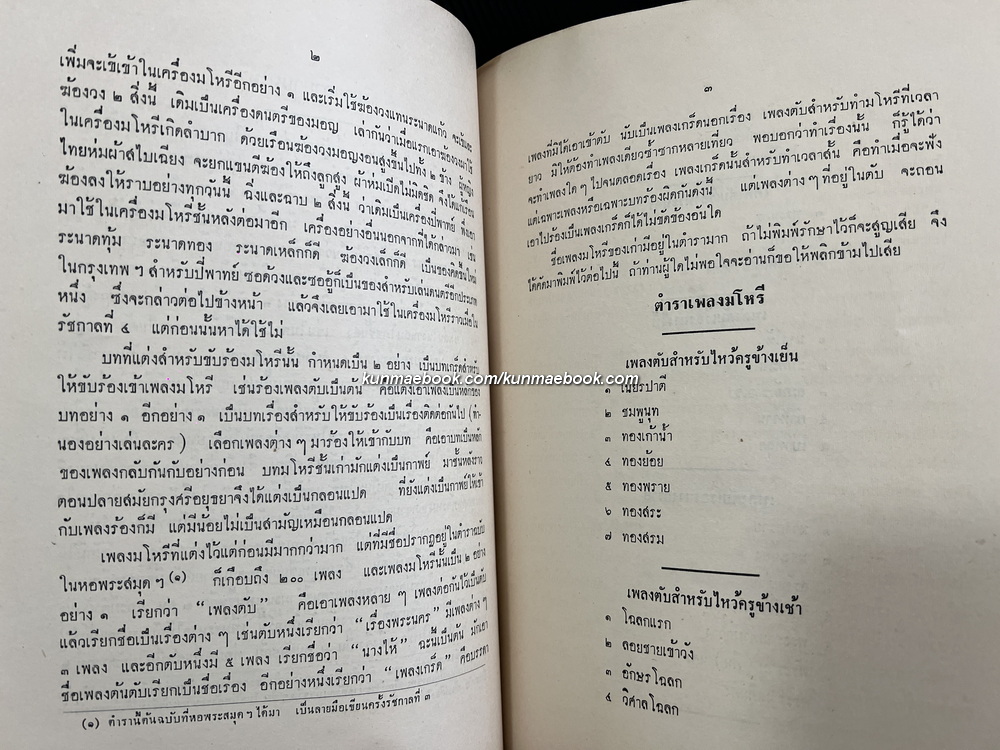 ๒
เพิ่มจะเข้เข้าในเครื่องมโหรีอีกอย่าง ๑ และเริ่มใช้ฆ้องวงแทนระนาดแก้ว จะเข้และ
ฆ้องวง ๒ สิ่งนี้ เดิมเป็นเครื่องดนตรีของมอญ เล่ากันว่าเมื่อแรกเอาฆ้องวงมาใช้
ในเครื่องมโหรีเกิดลำบาก ด้วยเรือนฆ้องวงมอญงอนสูงขึ้นไปทั้ง ๒ ข้าง ผู้หญิง
ไทยห่มผ้าสไบเฉียง จะยกแขนตีฆ้องให้ถึงลูกสูง ผ้าห่มเปิดไม่มิดชิด จึงได้แก้เรือน
ฆ้องลงให้ราบอย่างทุกวันนี้ ฉิ่งและฉาบ ๒ สิ่งนี้ ว่าเดิมเป็นเครื่องปี่พาทย์ พึ่งเอา
มาใช้ในเครื่องมโหรีชั้นหลังต่อมาอีก เครื่องอย่างอื่นนอกจากที่ได้กล่าวมา เช่น
ระนาดทุ้ม ระนาดทอง ระนาดเหล็กก็ดี ฆ้องวงเล็กก็ดี เป็นของคิดขึ้นใหม่
ในกรุงเทพ ๆ สำหรับปี่พาทย์ ซอด้วงและซออู้ก็เป็นของสำหรับเล่นดนตรีอีกประเภท
หนึ่ง ซึ่งจะกล่าวต่อไปข้างหน้า แล้วจึงเลยเอามาใช้ในเครื่องมโหรีราวเมื่อใน
รัชกาลที่ ๔ แต่ก่อนนั้นหาได้ใช้ไม่
บทที่แต่งสำหรับขับร้องมโหรีนั้น กำหนดเป็น ๒ อย่าง เป็นบทเกร็ดสำหรับ
ให้ขับร้องเข้าเพลงมโหรี เช่นร้องเพลงตับเป็นต้น คือแต่งเอาเพลงเป็นหลักของ
บทอย่าง ๑ อีกอย่าง ๑ เป็นบทเรื่องสำหรับให้ขับร้องเป็นเรื่องติดต่อกันไป (ทำ-
นองอย่างเล่นละคร) เลือกเพลงต่าง ๆ มาร้องให้เข้ากับบท คือเอาบทเป็นหลัก
ของเพลงกลับกันกับอย่างก่อน บทมโหรีชั้นเก่ามักแต่งเป็นกาพย์ มาชั้นหลังราว
ตอนปลายสมัยกรุงศรีอยุธยาจึงได้แต่งเป็นกลอนแปด ที่ยังแต่งเป็นกาพย์ให้เข้า
กับเพลงร้องก็มี แต่มีน้อยไม่เป็นสามัญเหมือนกลอนแปด
เพลงมโหรีที่แต่งไว้แต่ก่อนมีมากกว่ามาก แต่ที่มีชื่อปรากฏอยู่ในตำราฉบับ
ในหอพระสมุด ๆ (๑) ก็เกือบถึง ๒๐๐ เพลง และเพลงมโหรีนั้นเป็น ๒ อย่าง
อย่าง ๑ เรียกว่า “เพลงตับ” คือเอาเพลงหลาย ๆ เพลงต่อกันไว้เป็นตับ
แล้วเรียกชื่อเป็นเรื่องต่าง ๆ เช่นตับหนึ่งเรียกว่า “เรื่องพระนคร” มีเพลงต่าง ๆ
๓ เพลง และอีกตับหนึ่งมี ๕ เพลง เรียกชื่อว่า “นางไห้” ฉะนี้เป็นต้น มักเอา
ชื่อเพลงต้นตับเรียกเป็นชื่อเรื่อง อีกอย่างหนึ่งเรียกว่า “เพลงเกร็ด” คือบรรดา
(๑) ตำรานี้ต้นฉบับที่หอพระสมุด ๆ ได้มา เป็นลายมือเขียนครั้งรัชกาลที่ ๓
๓
เพลงที่มิได้เอาเข้าตับ นับเป็นเพลงเกร็ดนอกเรื่อง เพลงตับสำหรับทำมโหรีที่เวลา
ยาว มิให้ต้องทำเพลงเดียวซ้ำซากหลายเที่ยว พอบอกว่าทำเรื่องนั้น ก็รู้ได้ว่า
จะทำเพลงใด ๆ ไปจนตลอดเรื่อง เพลงเกร็ดนั้นสำหรับทำเวลาสั้น คือทำเมื่อจะฟัง
แต่เฉพาะเพลงหรือเฉพาะบทร้องผิดกันดังนี้ แต่เพลงต่าง ๆ ที่อยู่ในตับ จะถอน
เอาไปร้องเป็นเพลงเกร็ดก็ได้ไม่ขัดข้องอันใด
ชื่อเพลงมโหรีของเก่ามีอยู่ในตำรามาก ถ้าไม่พิมพ์รักษาไว้ก็จะสูญเสีย จึง
ได้คัดมาพิมพ์ไว้ต่อไปนี้ ถ้าท่านผู้ใดไม่พอใจจะอ่านก็ขอให้พลิกข้ามไปเสีย
ตำราเพลงมโหรี
เพลงตับสำหรับไหว้ครูข้างเย็น
๑ เนียรปาตี
๒ ชมพูนุท
๓ ทองเก้าน้ำ
๔ ทองย้อย
๕ ทองพราย
๖ ทองสระ
๗ ทองสรม
เพลงตับสำหรับไหว้ครูข้างเช้า
๑ โฉลกแรก
๒ ลอยชายเข้าวัง
๓ อักษรโฉลก
๔ วิศาลโฉลก
kunmaebook.com/kunmaebook.com